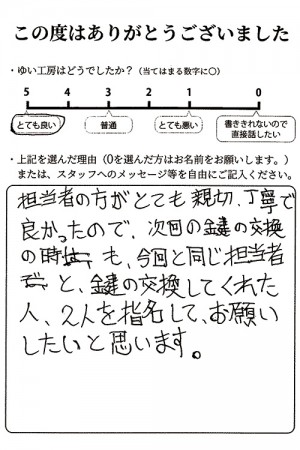 この度はありがとうございました
・ゆい工房はどうでしたか？（当てはまる数字に〇）
5 4 3 2 1 0
とても良い 普通 とても悪い 書ききれないので
直接話したい
・上記を選んだ理由（0を選んだ方はお名前をお願いします。）
または、スタッフへのメッセージ等を自由にご記入ください。
担当者の方がとても親切、丁寧で
良かったので、次回の鍵の交換
の時も、今回と同じ担当者
と、鍵の交換してくれた
人、2人を指名して、お願い
したいと思います。